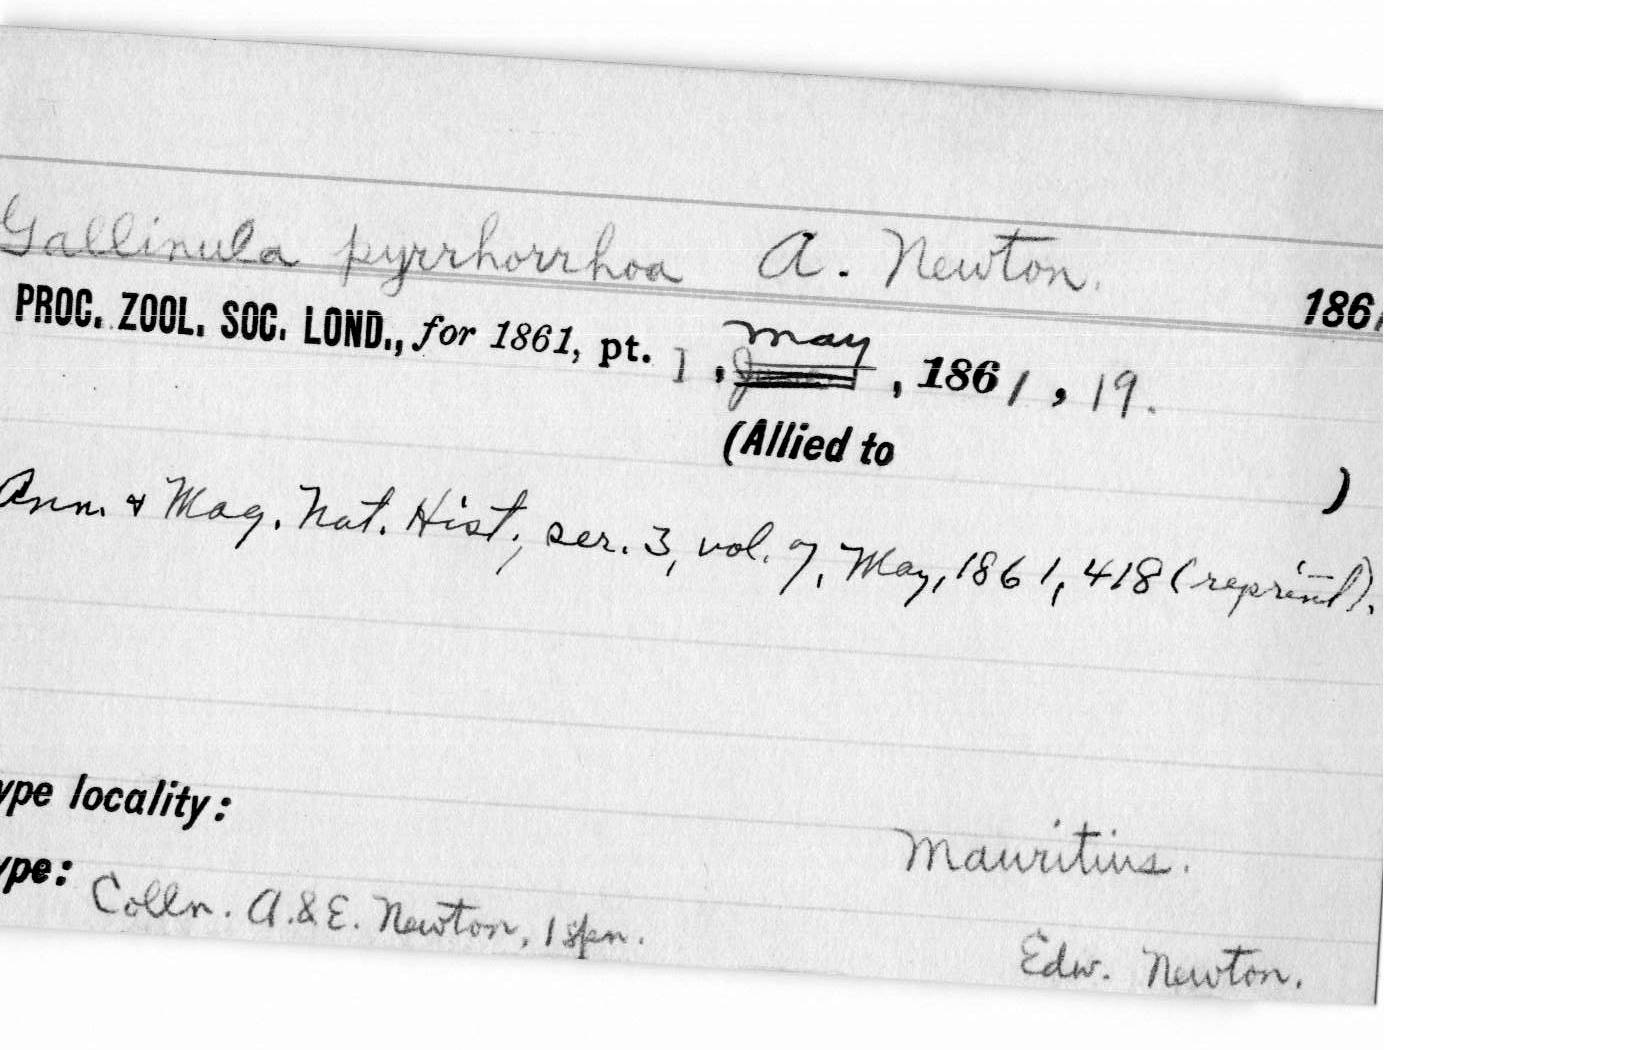 Gallinula pyrrhorrhoa A. Newton.
1861
PROC. ZOOL. SOC. LOND., for 1861, pt. 1, May, 1861, 19.
(Allied to )
Ann. & Mag. Nat. Hist., ser. 3, vol. 7, May, 1861, 418 (reprint).
ype locality:
Mauritius.
ype: Colln. A. & E. Newton, 1 spn.
Edw. Newton.